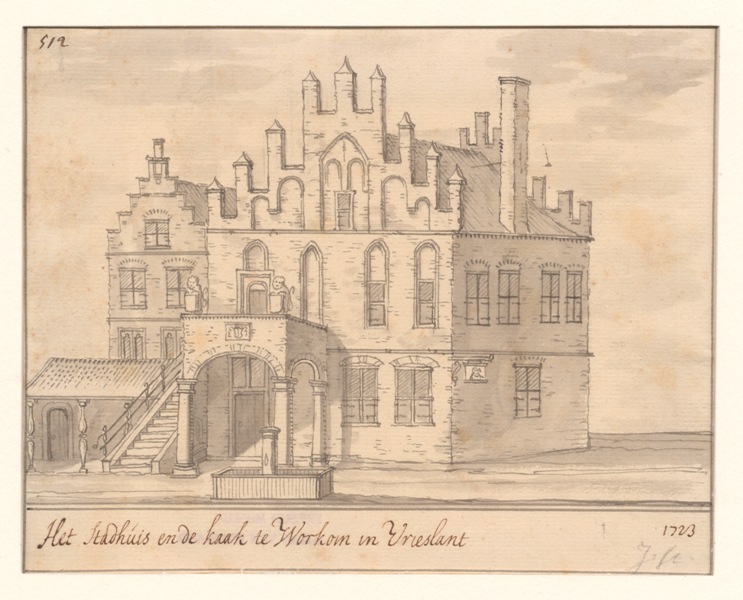 512
Het Stadhuis en de kaak te Workom in Vrieslant
1723